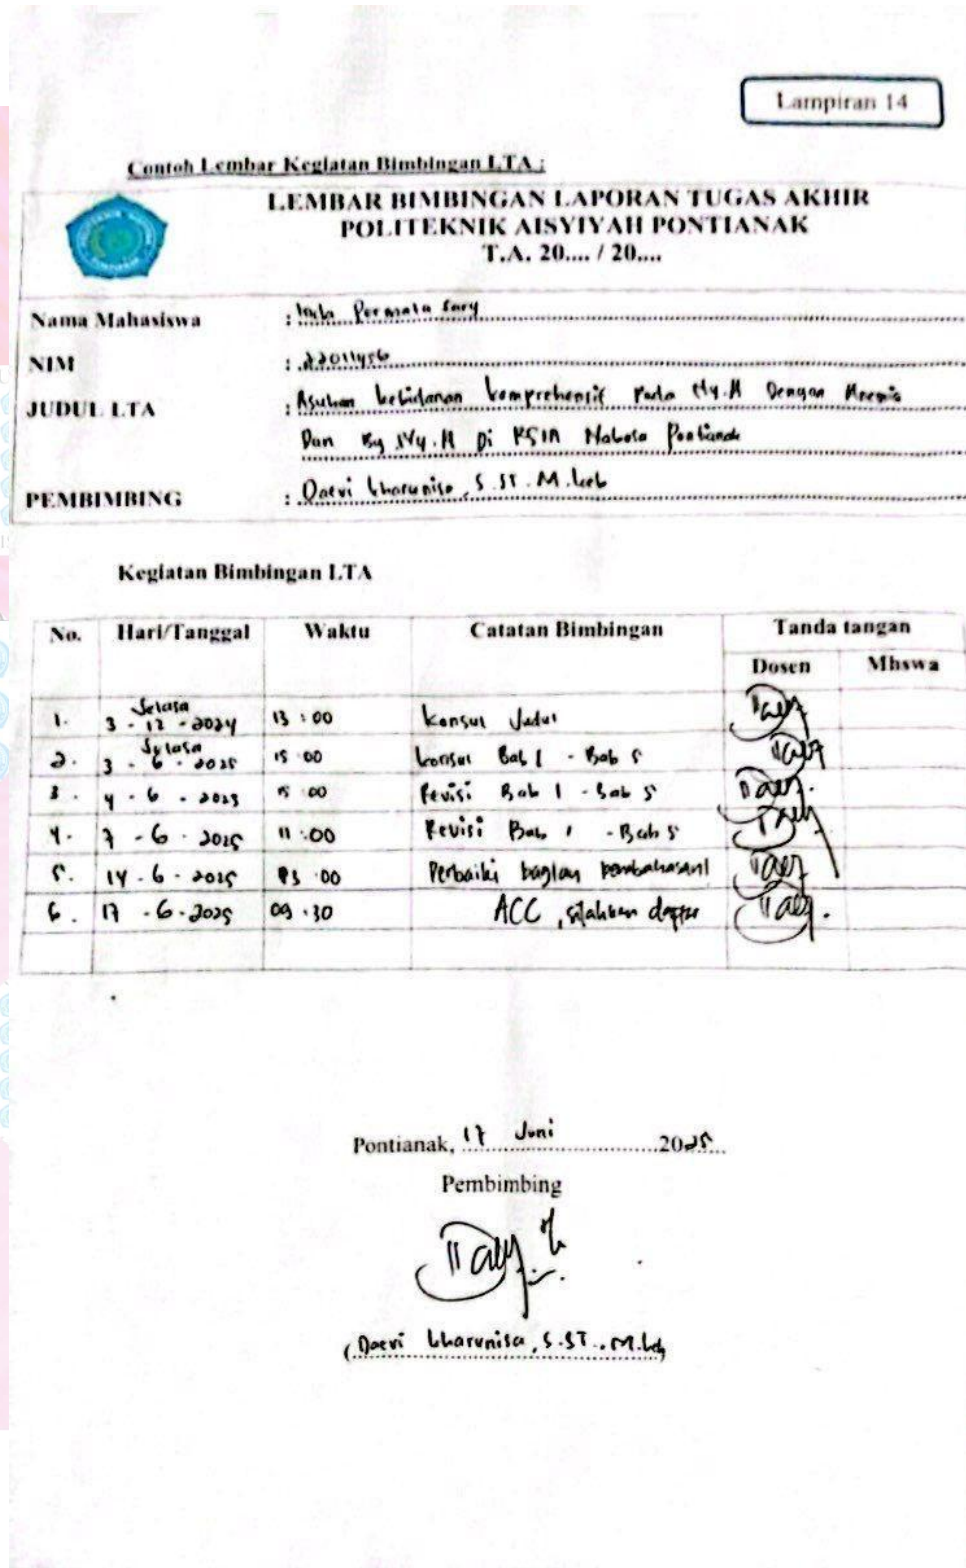 Lampiran 14
Contoh Lembar Kegiatan Bimbingan LTA :
LEMBAR BIMBINGAN LAPORAN TUGAS AKHIR
POLITEKNIK AISYIYAH PONTIANAK
T.A. 20.... / 20....
Nama Mahasiswa : Permata Sary
NIM : 22011456
JUDUL LTA : Asuhan kebidanan komprehensif Pada Ny.M Dengan
Dan By Ny.M Di RSIA Pontianak
PEMBIMBING : Daevi kharunisa, S.ST. M.keb
Kegiatan Bimbingan LTA
No. Hari/Tanggal Waktu Catatan Bimbingan Tanda tangan
Dosen Mhswa
1. Selasa 3 - 12 - 2024 13 : 00 konsul Judul
2. Selasa 3 - 6 - 2025 15 00 konsul Bab 1 - Bab 5
3. 4 - 6 - 2025 15 00 Revisi Bab 1 - Bab 5
4. 7 - 6 - 2025 11 :00 Revisi Bab 1 - Bab 5
5. 14 - 6 - 2025 :00 Perbaiki bagian pembahasan
6. 17 - 6 - 2025 09 :30 ACC, silahkan daftar
Pontianak, 17 Juni 2025
Pembimbing
(Daevi kharunisa, S.ST., M.keb)